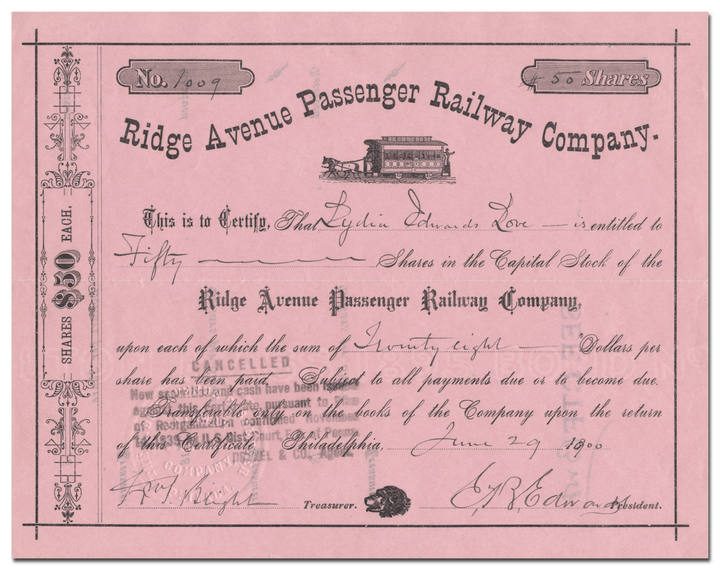 No. 1009
50 Shares
Ridge Avenue Passenger Railway Company.
This is to Certify, That Lydia Edwards Love is entitled to
Fifty Shares in the Capital Stock of the
Ridge Avenue Passenger Railway Company,
upon each of which the sum of Twenty eight Dollars per
share has been paid. Subject to all payments due or to become due.
Transferable only on the books of the Company upon the return
of this Certificate. Philadelphia, June 29 1900
Treasurer.
Edwards President.
SHARES $50 EACH.
CANCELLED
New securities and cash have been
this pursuant to Plan
of Reorganization confirmed November
U.S. Dist. Court, E.D. of Penna.
& CO.